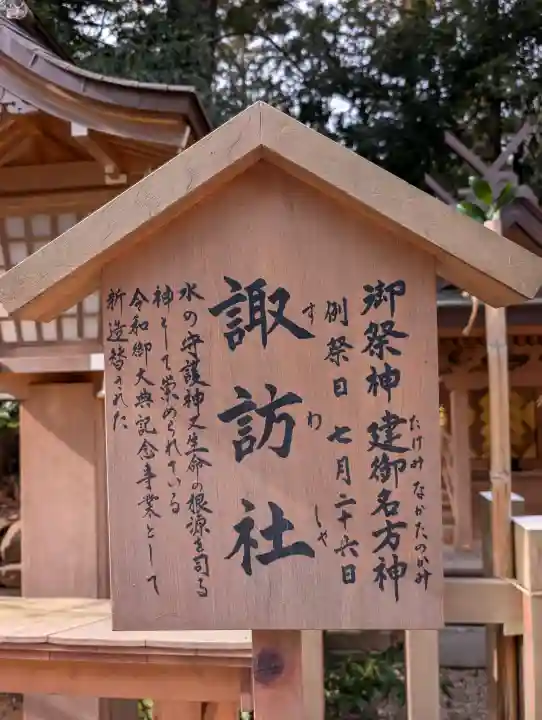 御祭神 建御名方神
たけみなかたのかみ
例祭日 七月二十六日
諏訪社
すわしゃ
水の守護神又生命の根源を司る
神として崇められている
令和御大典記念事業として
新造替された